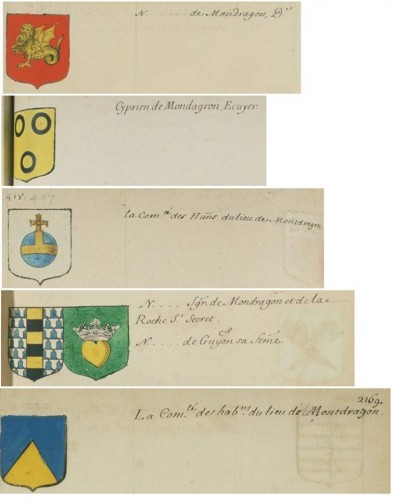 N ..... de Mondragon, D.lle
Cyprien de Mondagron, Ecuyer.
la Com.té des Hãns du lieu de Mondragon
N ..... Sgr. de Mondragon et de la
Roche S.t Secret.
N. .... de Guyon sa feme.
2169.
La Com.té des hab.ns du lieu de Montdragon.